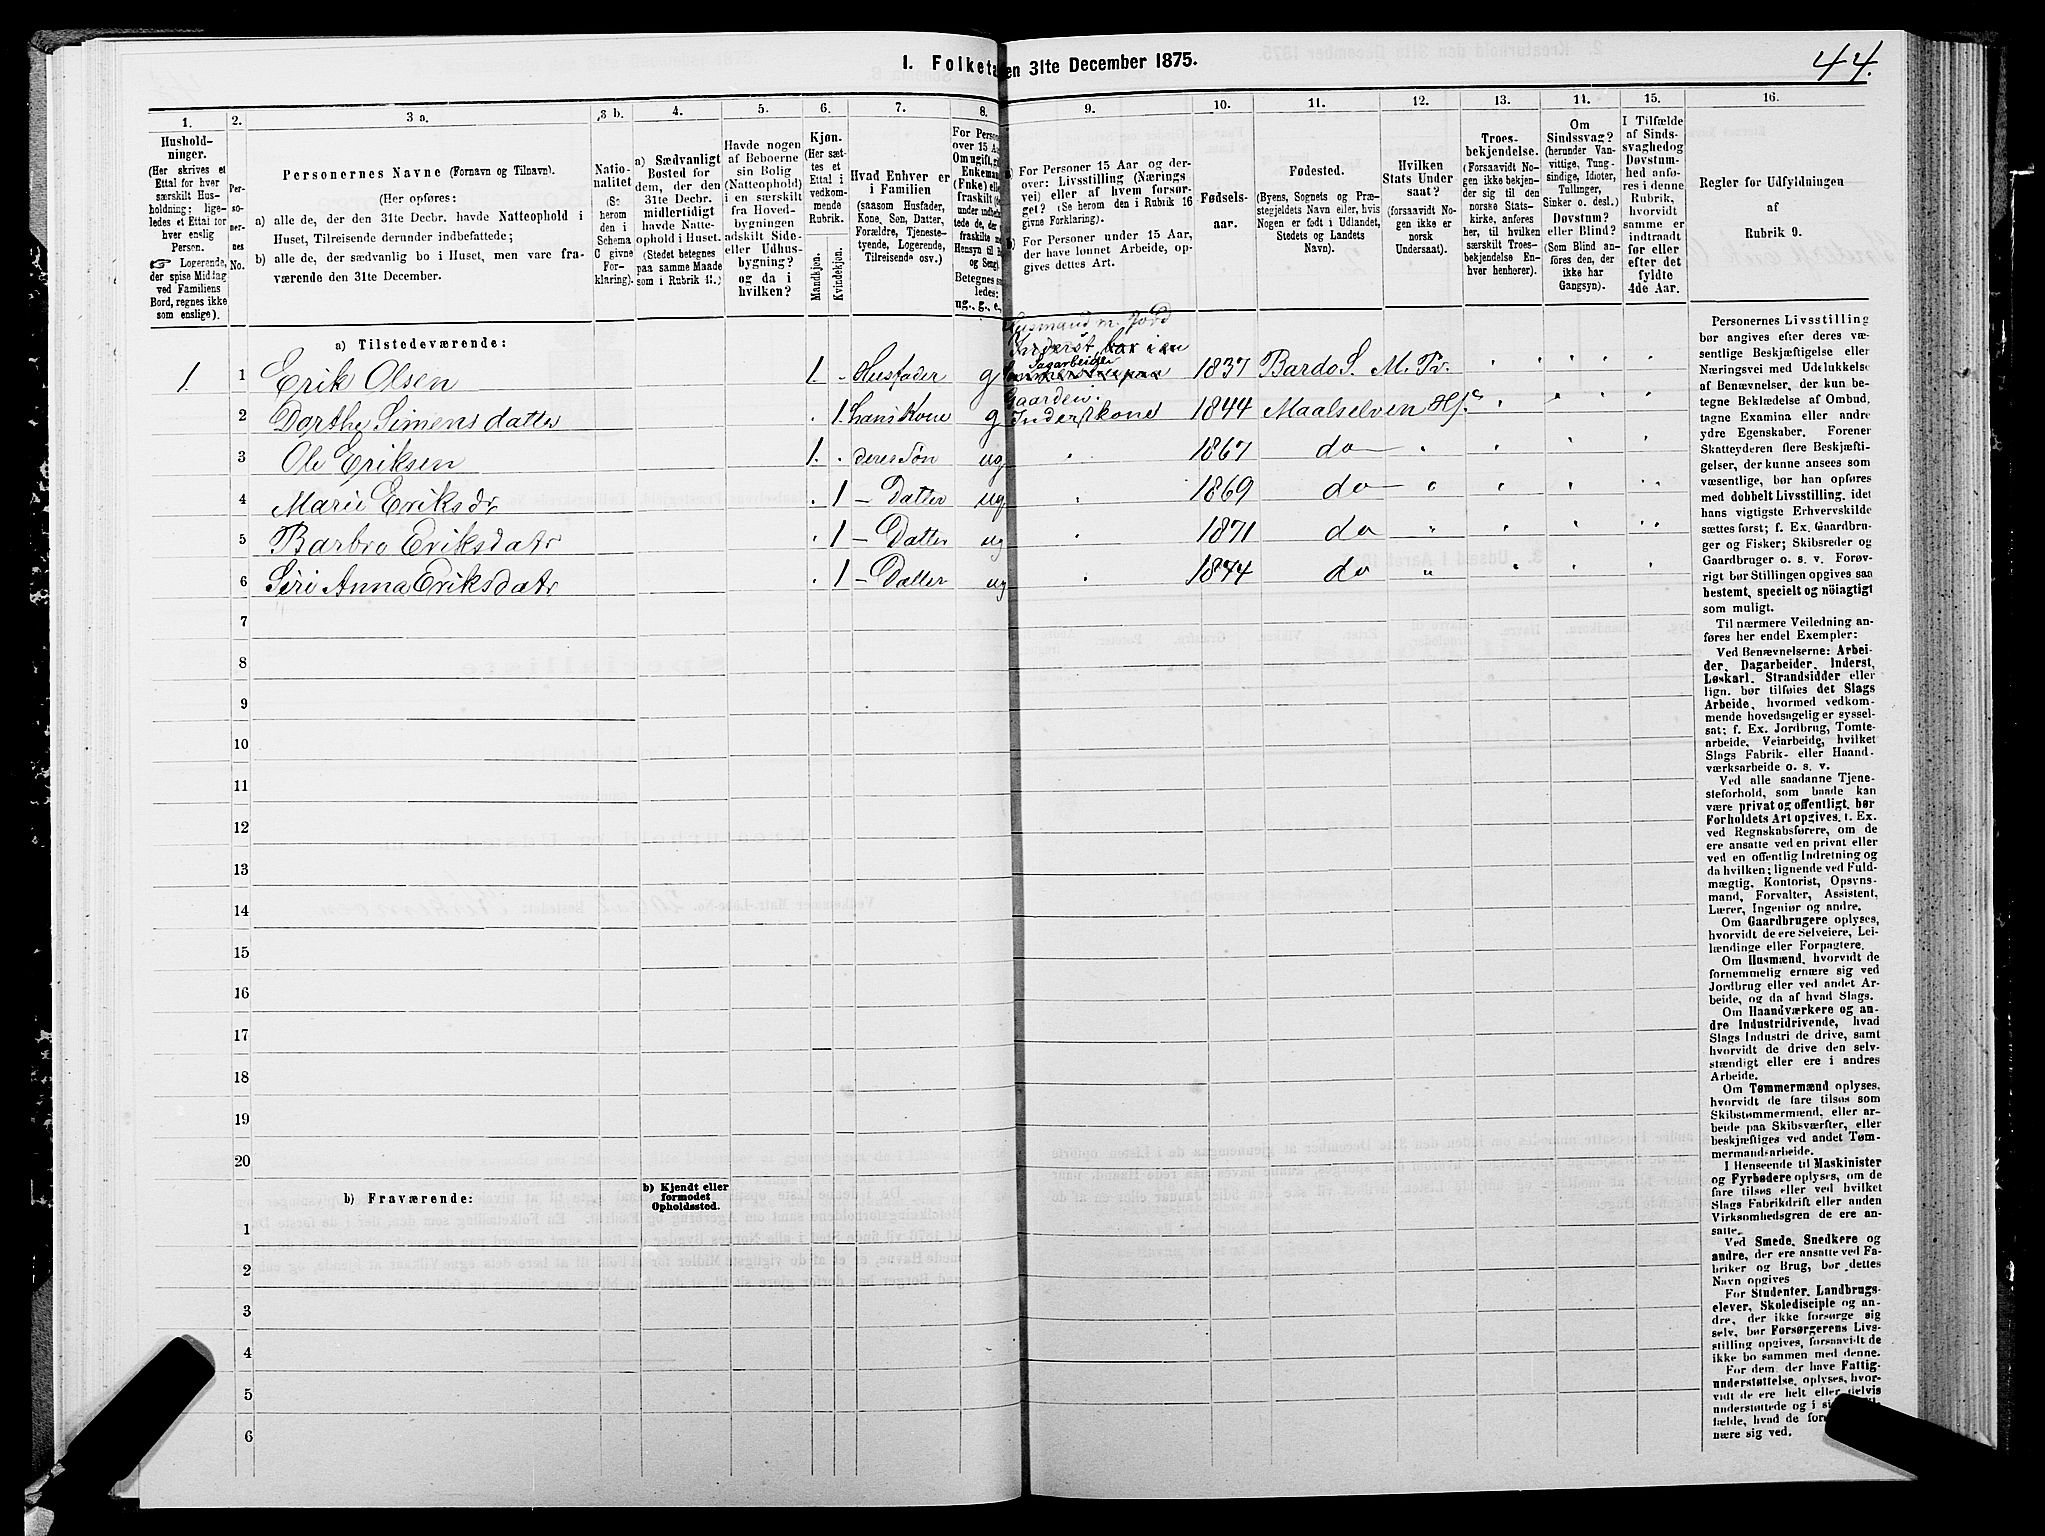 I. Folketællingen 31te December 1875.
44.
1.
2.
3 a.
3 b.
4.
5.
6.
7.
8.
9.
10.
11.
12.
13.
14.
15.
16.
Hushold-
ninger.
(Her skrives et
Ettal for hver
særskilt Hus-
holdning; lige-
ledes et Ettal for
hver enslig
Person.
☞ Logerende,
der spise Middag
ved Familiens
Bord, regnes ikke
som enslige).
Per-
so-
ner-
nes
No.
Personernes Navne (Fornavn og Tilnavn).
(Her opføres:
a) alle de, der den 31te Decbr. havde Natteophold i
Huset, Tilreisende derunder indbefattede;
b) alle de, der sædvanlig bo i Huset, men vare fra-
værende den 31te December.
Natio-
nalitet
(Se
herom
den i
Schema
C givne
For-
klaring).
a) Sædvanligt
Bosted for
dem, der den
31te Decbr.
midlertidigt
havde Natte-
ophold i Huset.
(Stedet betegnes
paa samme Maade
som i Rubrik 11.)
Havde nogen
af Beboerne
sin Bolig
(Natteophold)
i en særskilt
fra Hoved-
bygningen
adskilt Side-
eller Udhus-
bygning?
og da i
hvilken?
Kjøn.
(Her sæt-
tes et
Ettal i
vedkom-
mende
Rubrik.
Mandkjøn.
Kvindekjøn.
Hvad Enhver er
i Familien
(saasom Husfader,
Kone, Søn, Datter,
Forældre, Tjeneste-
tyende, Logerende,
Tilreisende osv.)
For Persone
over 15 Aa
Om ugift, g
Enkema
(Fnke) ell
fraskilt (
under indbef
tede de, der
fraskilte
Hensyn til
og Seng
Betegnes s
ledes:
ug., g., e.
For Personer 15 Aar og der-
over: Livsstilling (Nærings-
vei) eller af hvem forsør-
get? (Se herom den i Rubrik 16
givne Forklaring).
For Personer under 15 Aar,
der have lønnet Arbeide, op-
gives dettes Art.
Fødsels-
aar.
Fødested.
(Byens, Sognets og Præ-
stegjeldets Navn eller, hvis
Nogen er født i Udlandet,
Stedets og Landets
Navn).
Hvilken
Stats Under
saat?
(forsaavidt No-
gen ikke er
norsk
Undersaat).
Troes-
bekjendelse.
(Forsaavidt No-
gen ikke bekjen-
der sig til den
norske Stats-
kirke, anføres
her, til hvilken
særskilt Troes-
bekjendelse En-
hver henhorer).
Om
Sindssvag?
(herunder Van-
vittige, Tung-
sindige, Idioter,
Tullinger,
Sinker o. desl.)
Døvstum?
eller Blind?
(Som Blind an-
føres den, der
ikke har
Gangsyn).
I Tilfælde
af Sinds-
svaghed og
Døvstum-
hed anfø-
res i denne
Rubrik,
hvorvidt
samme er
indtraadt
før eller
efter det
fyldte
4de Aar.
Regler for Udfyldningen
af
Rubrik 9.
a) Tilstedeværende:
Husmand m. Jord
Inderst
Sagarbeider
1. 1 Erik Olsen 1. - Husfader g 1837 Bardo S. M. Pr.
Gaarden.
2 Dorthe Simensdatter . 1. hans Kone g Inderstkone 1844 Maalselven
3 Ole Eriksen 1. . deres Søn ug 1867 do
4 Marie Eriksdr . 1 - Datter ug 1869 do
5 Barbro Eriksdatr . 1 - Datter ug 1871 do
6 Siri Anna Eriksdatr . 1 - Datter ug 1874 do
7
8
9
10
11
12
13
14
15
16
17
18
19
20
b) Fraværende:
b) Kjendt eller
formodet
Opholdssted.
1
2
3
4
5
6
Personernes Livsstilling
bør angives efter deres væ-
sentlige Beskjæftigelse eller
Næringsvei med Udelukkelse
af Benævnelser, der kun be-
tegne Beklædelse af Ombud,
tagne Examina eller andre
ydre Egenskaber. Forener
Skatteyderen flere Beskjæfti-
gelser, der kunne ansees som
væsentlige, bør han opføres
med dobbelt Livsstilling, idet
hans vigtigste Erhvervskilde
sættes først; f. Ex. Gaardbru-
ger og Fisker; Skibsreder og
Gaardbruger o. s. v. Forøv-
rigt bør Stillingen opgives saa
bestemt, specielt og nöiagtigt
som muligt.
Til nærmere Veiledning an-
føres her endel Exempler:
Ved Benævnelserne: Arbei-
der, Dagarbeider, Inderst,
Løskarl, Strandsidder eller
lign. bør tilføies det Slags
Arbeide, hvormed vedkom-
mende hovedsagelig er syssel-
sat; f. Ex. Jordbrug, Tomte-
arbeide, Veiarbeide, hvilket
Slags Fabrik- eller Haand-
værksarbeide o. s. v.
Ved alle saadanne Tjene-
steforhold, som baade kan
være privat og offentligt, bør
Forholdets Art opgives, f. Ex.
ved Regnskabsførere, om de
ere ansatte ved en privat eller
ved en offentlig Indretning og
da hvilken; lignende ved Fuld-
mægtig, Kontorist, Opsyns-
mand, Forvalter, Assistent,
Lærer, Ingeniør og andre.
Om Gaardbrugere oplyses,
hvorvidt de ere Selveiere, Lei-
lændinge eller Forpagtere.
Om Husmænd, hvorvidt de
fornemmelig ernære sig ved
Jordbrug eller ved andet Ar-
beide, og da af hvad Slags.
Om Haandværkere og an-
dre Industridrivende, hvad
Slags Industri de drive, samt
hvorvidt de drive den selv-
stændigt eller ere i andres
Arbeide.
Om Tømmermænd oplyses,
hvorvidt de fare tilsøs som
Skibstømmermænd, eller ar-
beide paa Skibsværfter, eller
beskjæftiges ved andet Tøm-
mermandsarbeide.
I Henseende til Maskinister
og Fyrbødere oplyses, om de
fare tilsøs eller ved hvilket
Slags Fabrikdrift eller anden
Virksomhedsgren de ere an-
satte.
Ved Smede, Snedkere og
andre, der ere ansatte ved Fa-
briker og Brug, bør dettes
Navn opgives
For Studenter, Landbrugs-
elever, Skoledisciple og an-
dre, der ikke forsørge sig
selv, bør Forsørgerens Livs-
stilling opgives, forsaavidt de
ikke bo sammen med denne.
For dem, der have Fattig-
understøttelse, oplyses, hvor-
vidt de ere helt eller delvis
understøttede og i si
fælde, hvad de for
nære sig ved.